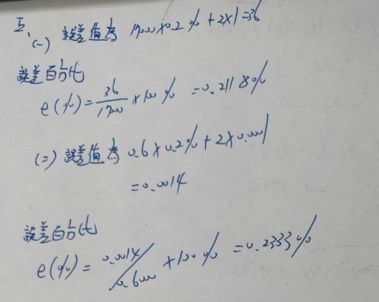 五、(一) 誤差值為 17000×0.2%+2×1=36
誤差百分比
e(%)= 36/1700 ×100% =0.2118%
(二) 誤差值為 0.6×0.2%+2×0.0001
=0.0014
誤差百分比
e(%)= 0.0014/0.6000 ×100% =0.2333%